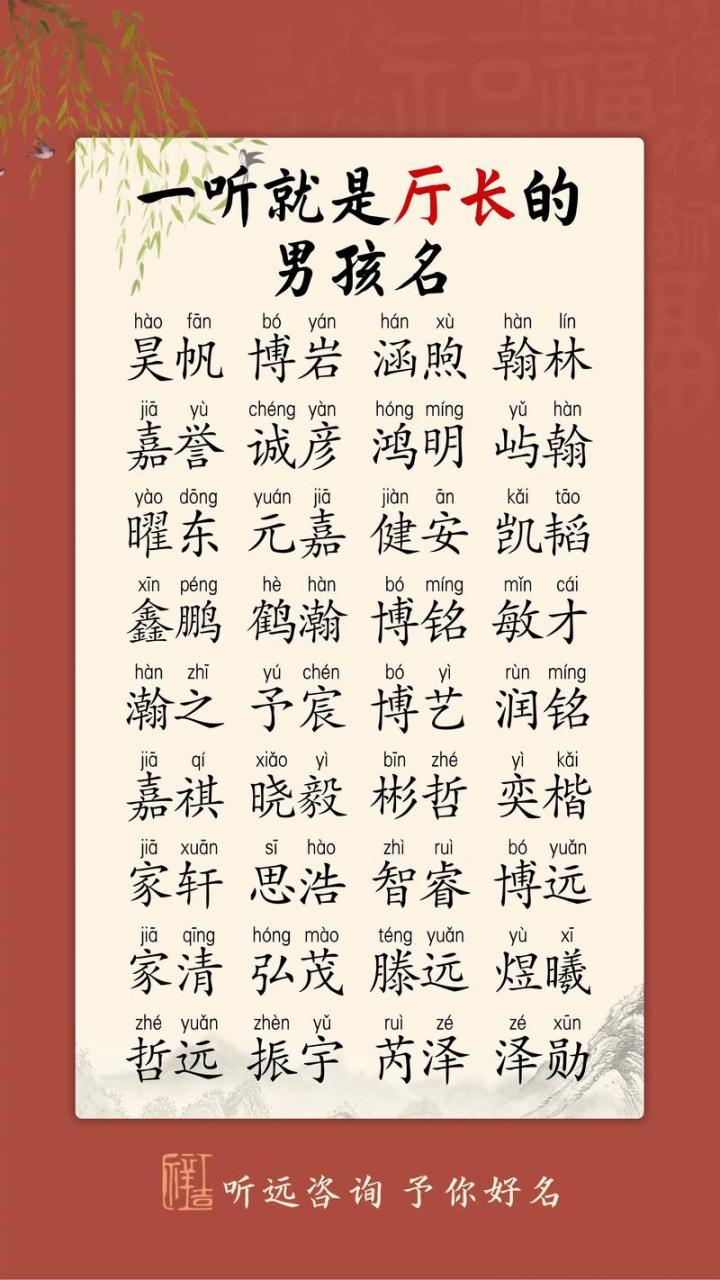 一听就是厅长的
男孩名
hào fān bó yán hán xù hàn lín
昊帆 博岩 涵煦 翰林
jiā yù chéng yàn hóng míng yǔ hàn
嘉誉 诚彦 鸿明 屿翰
yào dōng yuán jiā jiàn ān kǎi tāo
曜东 元嘉 健安 凯韬
xīn péng hè hàn bó míng mǐn cái
鑫鹏 鹤瀚 博铭 敏才
hàn zhī yú chén bó yì rùn míng
瀚之 予宸 博艺 润铭
jiā qí xiǎo yì bīn zhé yì kǎi
嘉祺 晓毅 彬哲 奕楷
jiā xuān sī hào zhì ruì bó yuǎn
家轩 思浩 智睿 博远
jiā qīng hóng mào téng yuǎn yù xī
家清 弘茂 滕远 煜曦
zhé yuǎn zhèn yǔ ruì zé zé xūn
哲远 振宇 芮泽 泽勋
听远咨询 予你好名